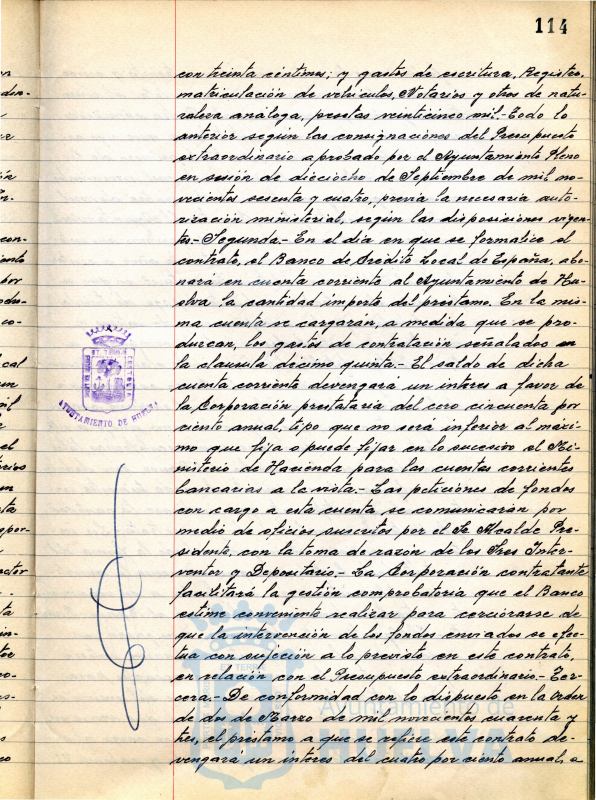 114
con treinta céntimos; y gastos de escritura, Registro,
matriculación de vehículos, Notarios y otros de natu-
raleza análoga, pesetas veinticinco mil.- Todo lo
anterior según las consignaciones del Presupuesto
extraordinario aprobado por el Ayuntamiento Pleno
en sesión de dieciocho de Septiembre de mil no-
vecientos sesenta y cuatro, previa la necesaria auto-
rización ministerial, según las disposiciones vigen-
tes.- Segunda.- En el día en que se formalice el
contrato, el Banco de Crédito Local de España, abo-
nara en cuenta corriente al Ayuntamiento de Hu-
elva la cantidad importe del préstamo. En la mis-
ma cuenta se cargarán, a medida que se pro-
duzcan, los gastos de contratación señalados en
la clausula décimo quinta.- El saldo de dicha
cuenta corriente devengará un interes a favor de
la Corporación prestataria del cero cincuenta por
ciento anual, tipo que no será inferior al máxi-
mo que fija o puede fijar en lo sucesivo el Mi-
nisterio de Hacienda para las cuentas corrientes
bancarias a la vista.- Las peticiones de fondos
con cargo a esta cuenta se comunicarán por
medio de oficios suscritos por el Sr. Alcalde Pre-
sidente, con la toma de razón de los Sres Inter-
ventor y Depositario.- La Corporación contratante
facilitará la gestión comprobatoria que el Banco
estime conveniente realizar para cerciorarse de
que la intervención de los fondos enviados se efec-
tua con sujeción a lo previsto en este contrato,
en relación con el Presupuesto extraordinario.- Ter-
cera.- De conformidad con lo dispuesto en la Orden
de dos de Marzo de mil novecientos cuarenta y
tres, el préstamo a que se refiere este contrato de-
vengará un interes del cuatro por ciento anual, a
AYUNTAMIENTO DE HUELVA
Ayuntamiento de
HUELVA